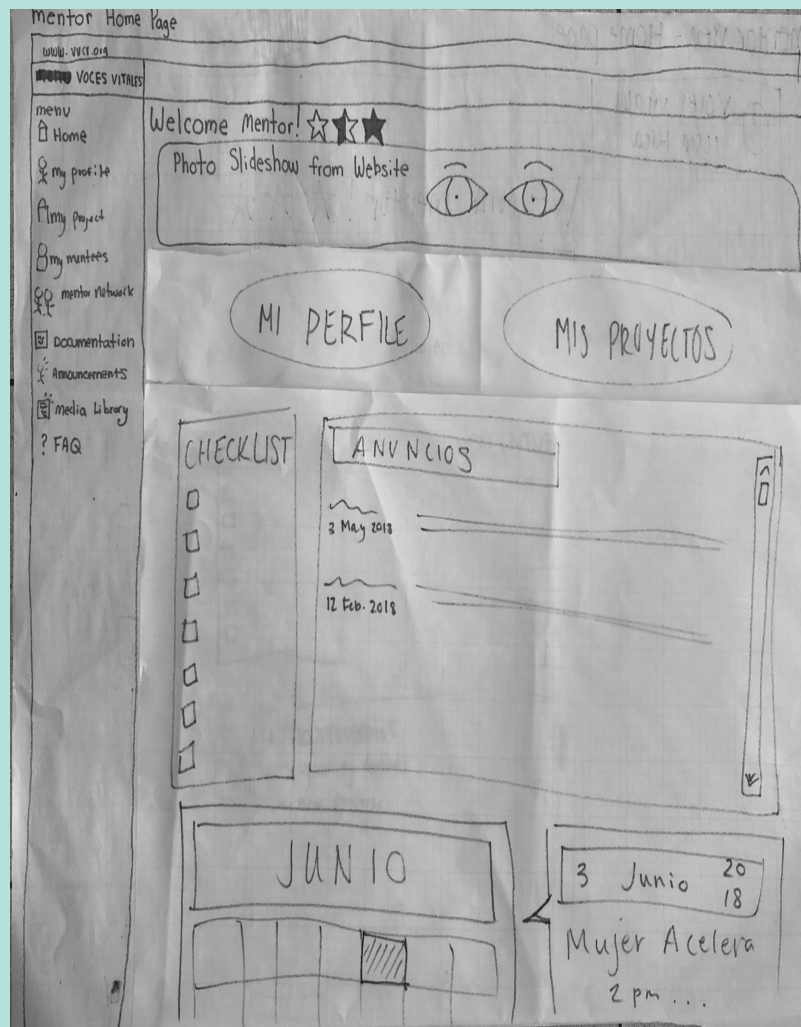 Mentor Home Page
www.vvcr.org
VOCES VITALES
menu
Home
my profile
my project
my mentees
mentor network
Documentation
Announcements
Media Library
? FAQ
Welcome Mentor!
Photo Slideshow from Website
MI PERFILE
MIS PROYECTOS
CHECKLIST
ANUNCIOS
3 May 2018
12 Feb. 2018
JUNIO
3 Junio 20
18
Mujer Acelera
2 pm ...